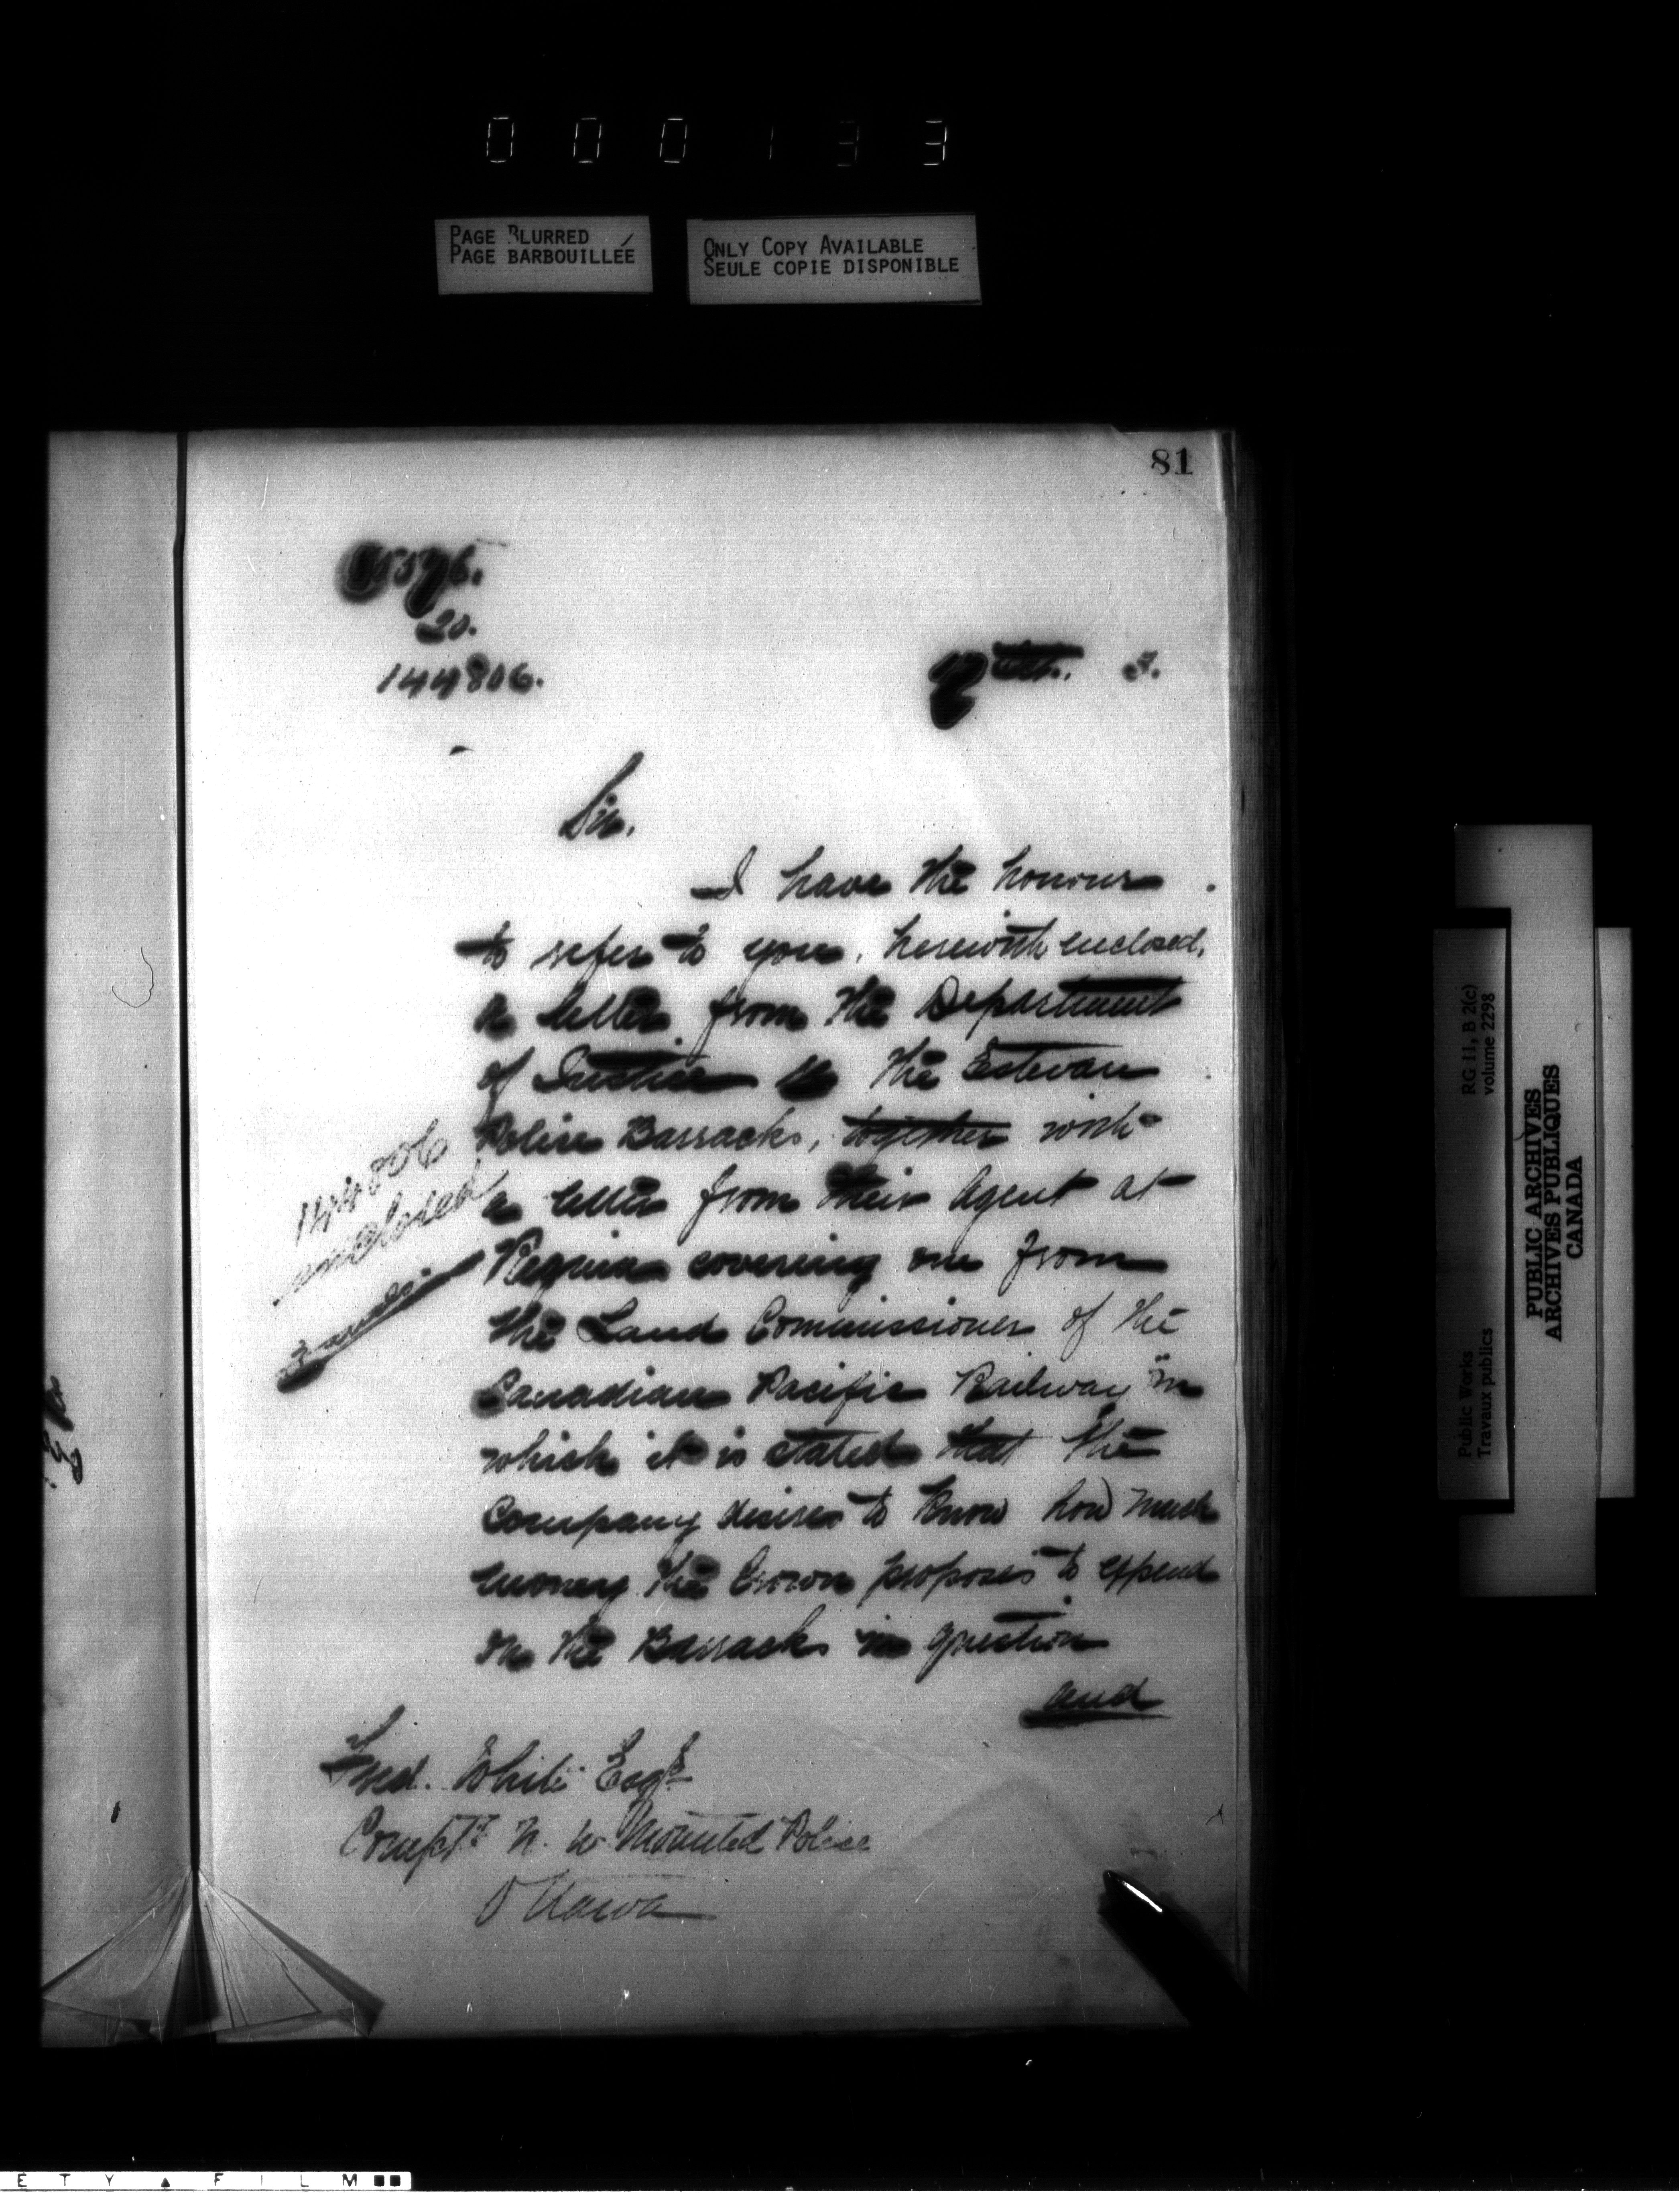 000133
PAGE BLURRED
PAGE BARBOUILLÉE
ONLY COPY AVAILABLE
SEULE COPIE DISPONIBLE
81
20.
144806.
Sir.
I have the honour
to refer to you, herewith enclosed,
a letter from the Department
of Justice the Estevan
Police Barracks, together with
a letter from their Agent at
Regina covering one from
the Land Commissioner of the
Canadian Pacific Railway in
which it is stated that the
Company desires to know how much
money the Crown proposes to expend
on the Barracks in question
and
144806
enclosed
Fred. White Esqr
Compt. N. W. Mounted Police
Ottawa
Public Works
Travaux publics
RG 11, B 2(c)
volume 2298
PUBLIC ARCHIVES
ARCHIVES PUBLIQUES
CANADA
ETY ▲ FILM